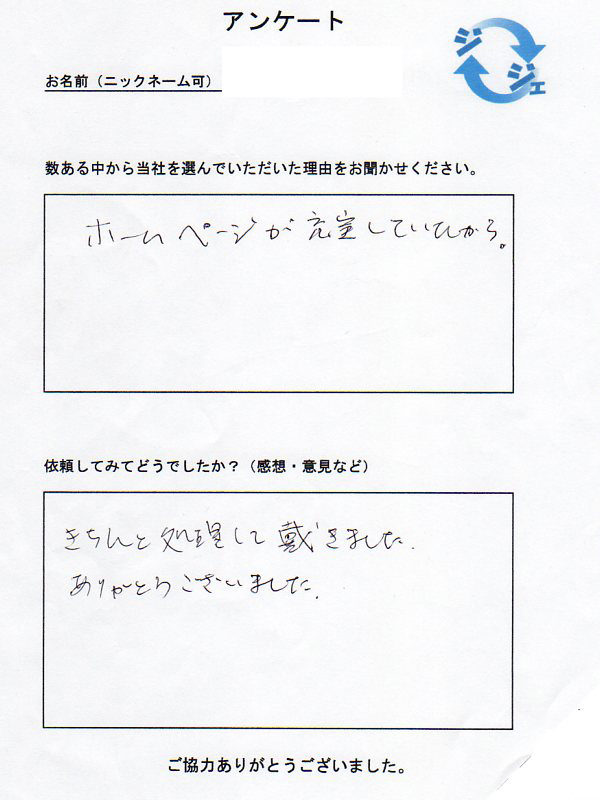 アンケート
ジジェ
お名前（ニックネーム可）
数ある中から当社を選んでいただいた理由をお聞かせください。
ホームページが充実していたから。
依頼してみてどうでしたか？（感想・意見など）
きちんと処理して戴きました.
ありがとうございました.
ご協力ありがとうございました。